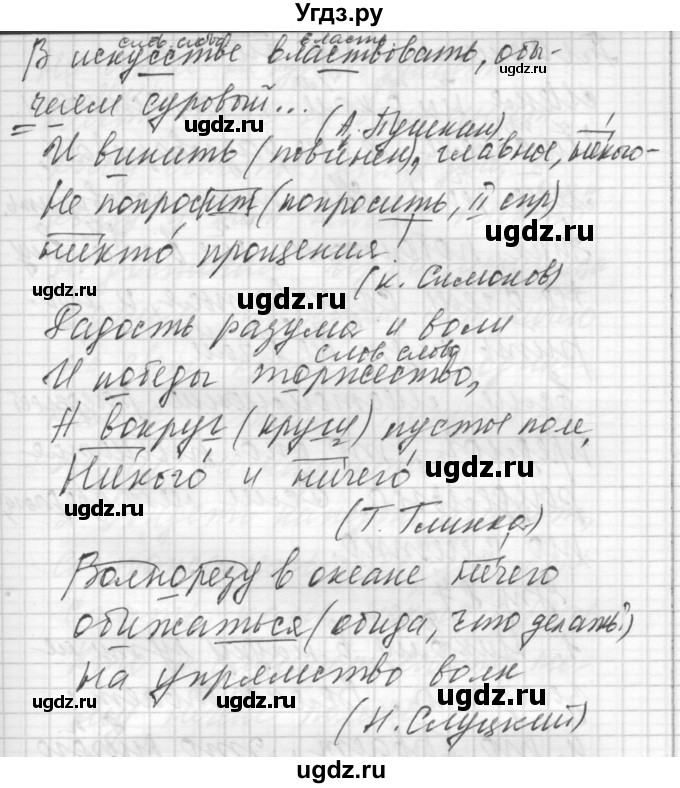 Угдз.ру
слов слова власть
В искусстве властвовать, обы-
ugdz.ru
чаем суровый...
ugdz.ru
(А. Пушкин)
ugdz.ru
И винить (повинен), главное, некого –
Не попросит (попросить, II спр)
ugdz.ru
никто прощения!
ugdz.ru ugdz.ru
(К. Симонов)
Радость разума и воли
слов слова
И победы торжество,
А вокруг (кругу) пустое поле,
Никого и ничего
ugdz.ru
ugdz.ru
(Т. Глинка)
Волнорезу в океане нечего
обижаться (обида, что делать?)
на упрямство волн
ugdz.ru ugdz.ru
(Н. Слуцкий)
ugdz.ru